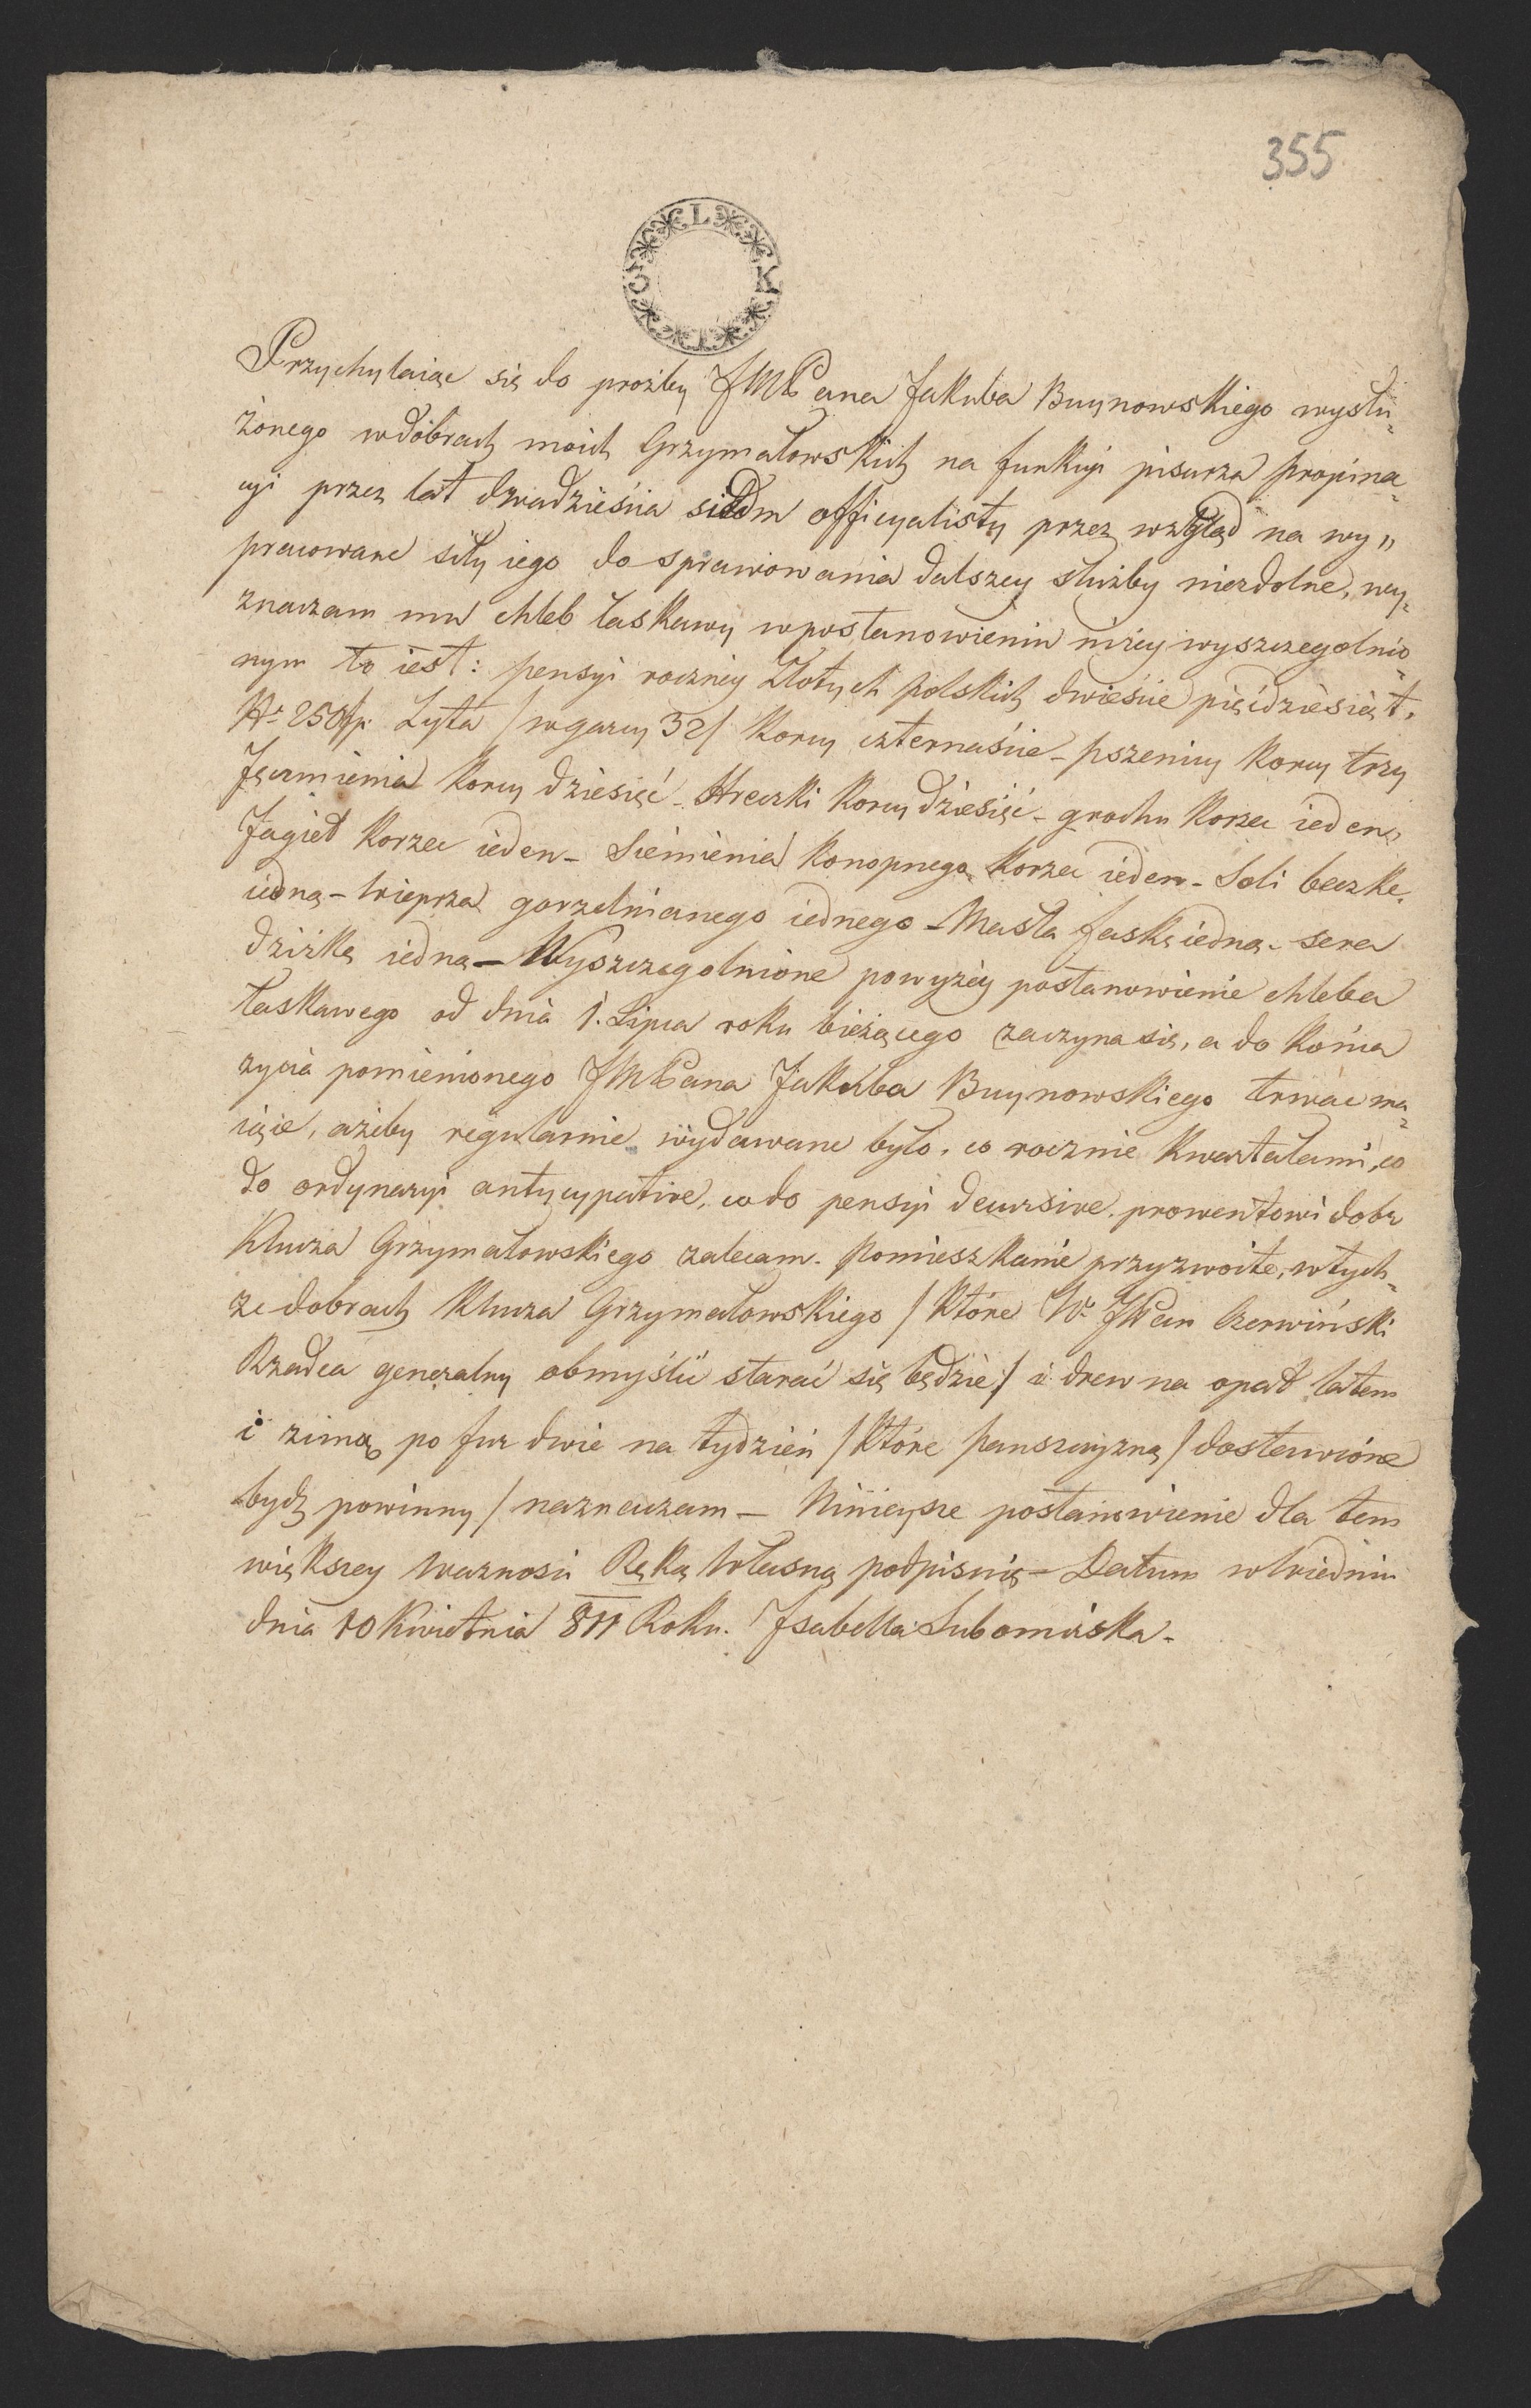 355
L
C K
Przychylaiąc się do proźby JMPana Jakuba Buynowskiego wysłu-
żonego w dobrach moich Grzymałowskich na funkcyi pisarza propina-
cyi przez lat dwadzieścia siedm officyalisty przez wzgląd na wy„
pracowane siły iego do sprawowania dalszey służby niezdolne, wy-
znaczam mu chleb łaskawy w postanowieniu niżey wyszczegolnio-
nym to iest: pensyi roczney Złotych polskich dwieście pięćdziesiąt,
Nr. 250 fp. Żyta / w garcy 32 / korcy czternaście – pszenicy korcy trzy
Jęczmienia korcy dziesięć – Hreczki korcy dziesięć – grochu korzec ieden,
Jagieł korzec ieden – Siemienia konopnego korzec ieden – Soli beczkę
iedną – wieprza gorzelnianego iednego – Masła faskę iedną – sera
dziżkę iedną – Wyszczegolnione powyżey postanowienie chleba
łaskawego od dnia 1. Lipca roku bieżącego zaczyna się, a do końca
życia pomienionego JMPana Jakuba Buynowskiego trwać ma-
iące, ażeby regularnie wydawane było, co rocznie kwartałami, co
do ordynaryi antycypative, co do pensyi decursive, prowentowi dobr
Klucza Grzymałowskiego zalecam. Pomieszkanie przyzwoite, w tych-
że dobrach Klucza Grzymałowskiego / które W. JPan Czerwiński
Rządca generalny obmyślić starać się będzie / i drew na opał latem
i zimą po fur dwie na tydzień / które panszczyzną / dostawione
bydź powinny / naznaczam – Ninieysze postanowienie dla tem
większey ważności Ręką Własną podpisuię – Datum w Wiedniu
dnia 10 Kwietnia 811 Roku. Isabella Lubomirska –